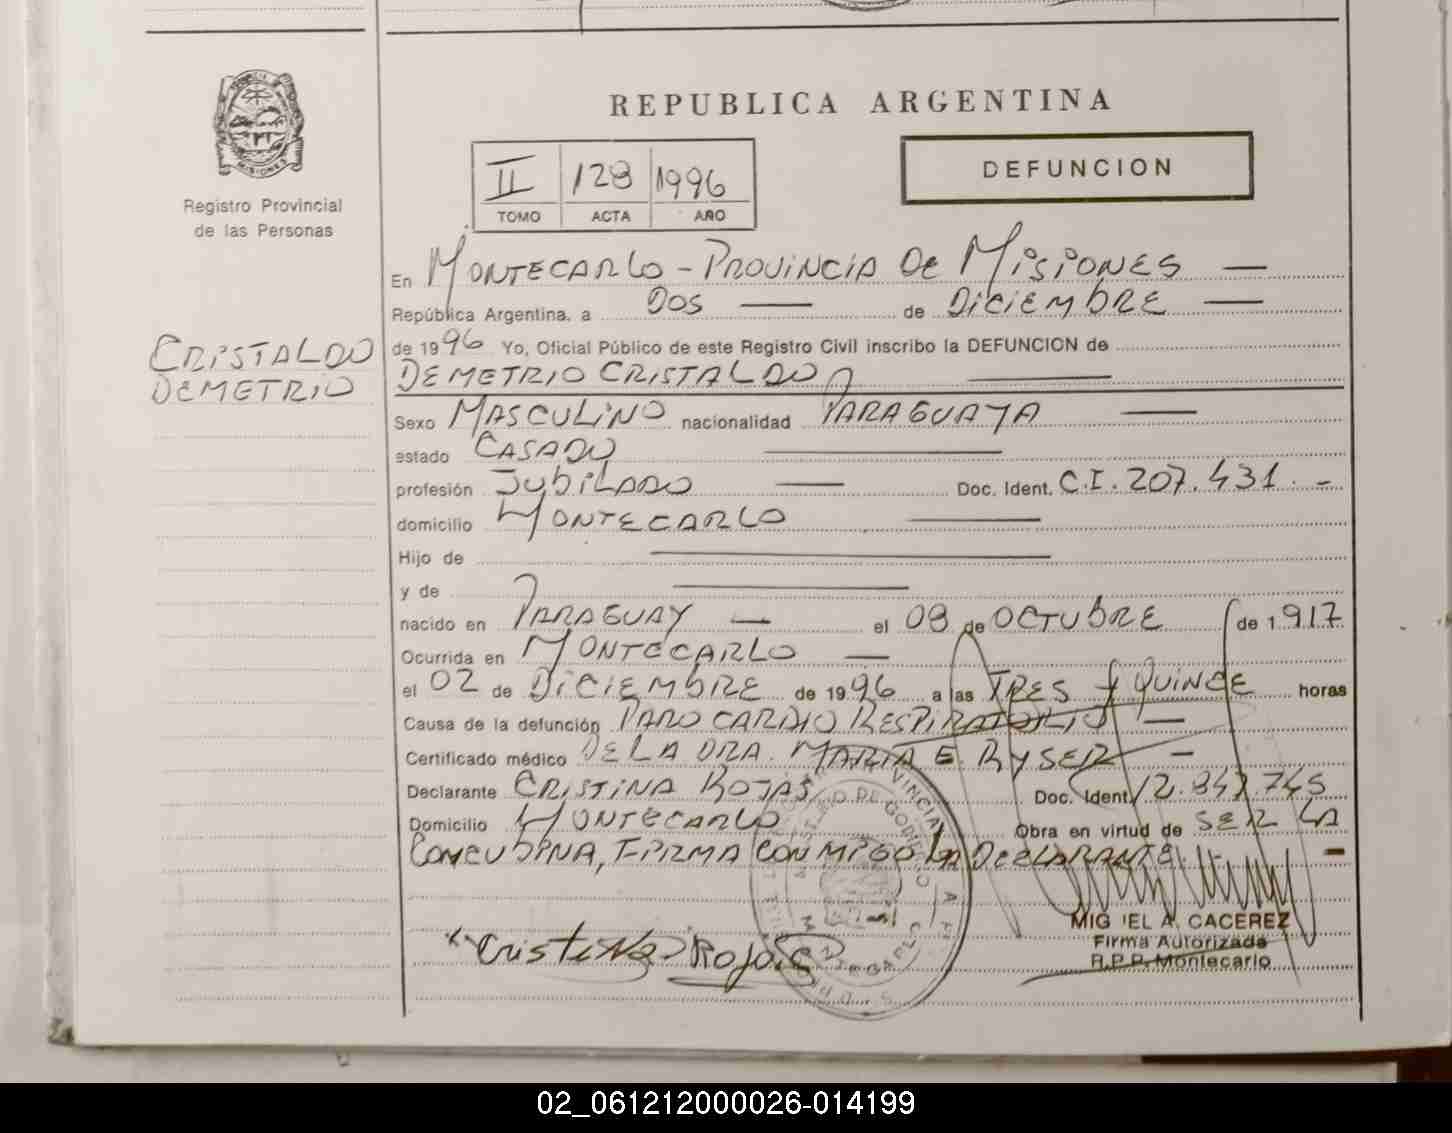 REPUBLICA ARGENTINA
MISIONES
Registro Provincial
de las Personas
II 128 1996
TOMO ACTA AÑO
DEFUNCION
CRISTALDO
DEMETRIO
En MONTECARLO - PROVINCIA DE MISIONES —
República Argentina, a DOS — de DICIEMBRE —
de 1996 Yo, Oficial Público de este Registro Civil inscribo la DEFUNCION de
DEMETRIO CRISTALDO —
Sexo MASCULINO nacionalidad PARAGUAYA —
estado CASADO —
profesión JUBILADO — Doc. Ident. C.I. 207.431. -
domicilio MONTECARLO —
Hijo de —
y de —
nacido en PARAGUAY — el 08 de OCTUBRE de 1917
Ocurrida en MONTECARLO —
el 02 de DICIEMBRE de 1996 a las TRES y QUINCE horas
Causa de la defunción PARO CARDIO RESPIRATORIO —
Certificado médico DE LA DRA. MARIA E. RYSER —
Declarante CRISTINA ROJAS Doc. Ident. 12.847.745
Domicilio MONTECARLO Obra en virtud de SER LA
CONCUBINA, FIRMA CONMIGO LA DECLARANTE. -
MIGUEL A. CACEREZ
Firma Autorizada
R.P.P. Montecarlo
Cristina Rojas
02_061212000026-014199